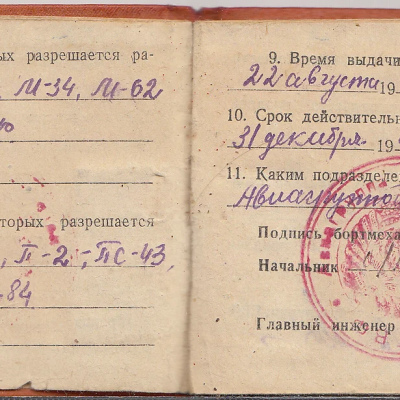 ых разрешается ра-
М-34, М-62
ю
оторых разрешается
, П-2, ПС-43,
-84
9. Время выдачи
22 августа 19
10. Срок действительн
31 декабря 19
11. Каким подразделе
Авиагруппой
Подпись бортмеха
Начальник
Главный инженер